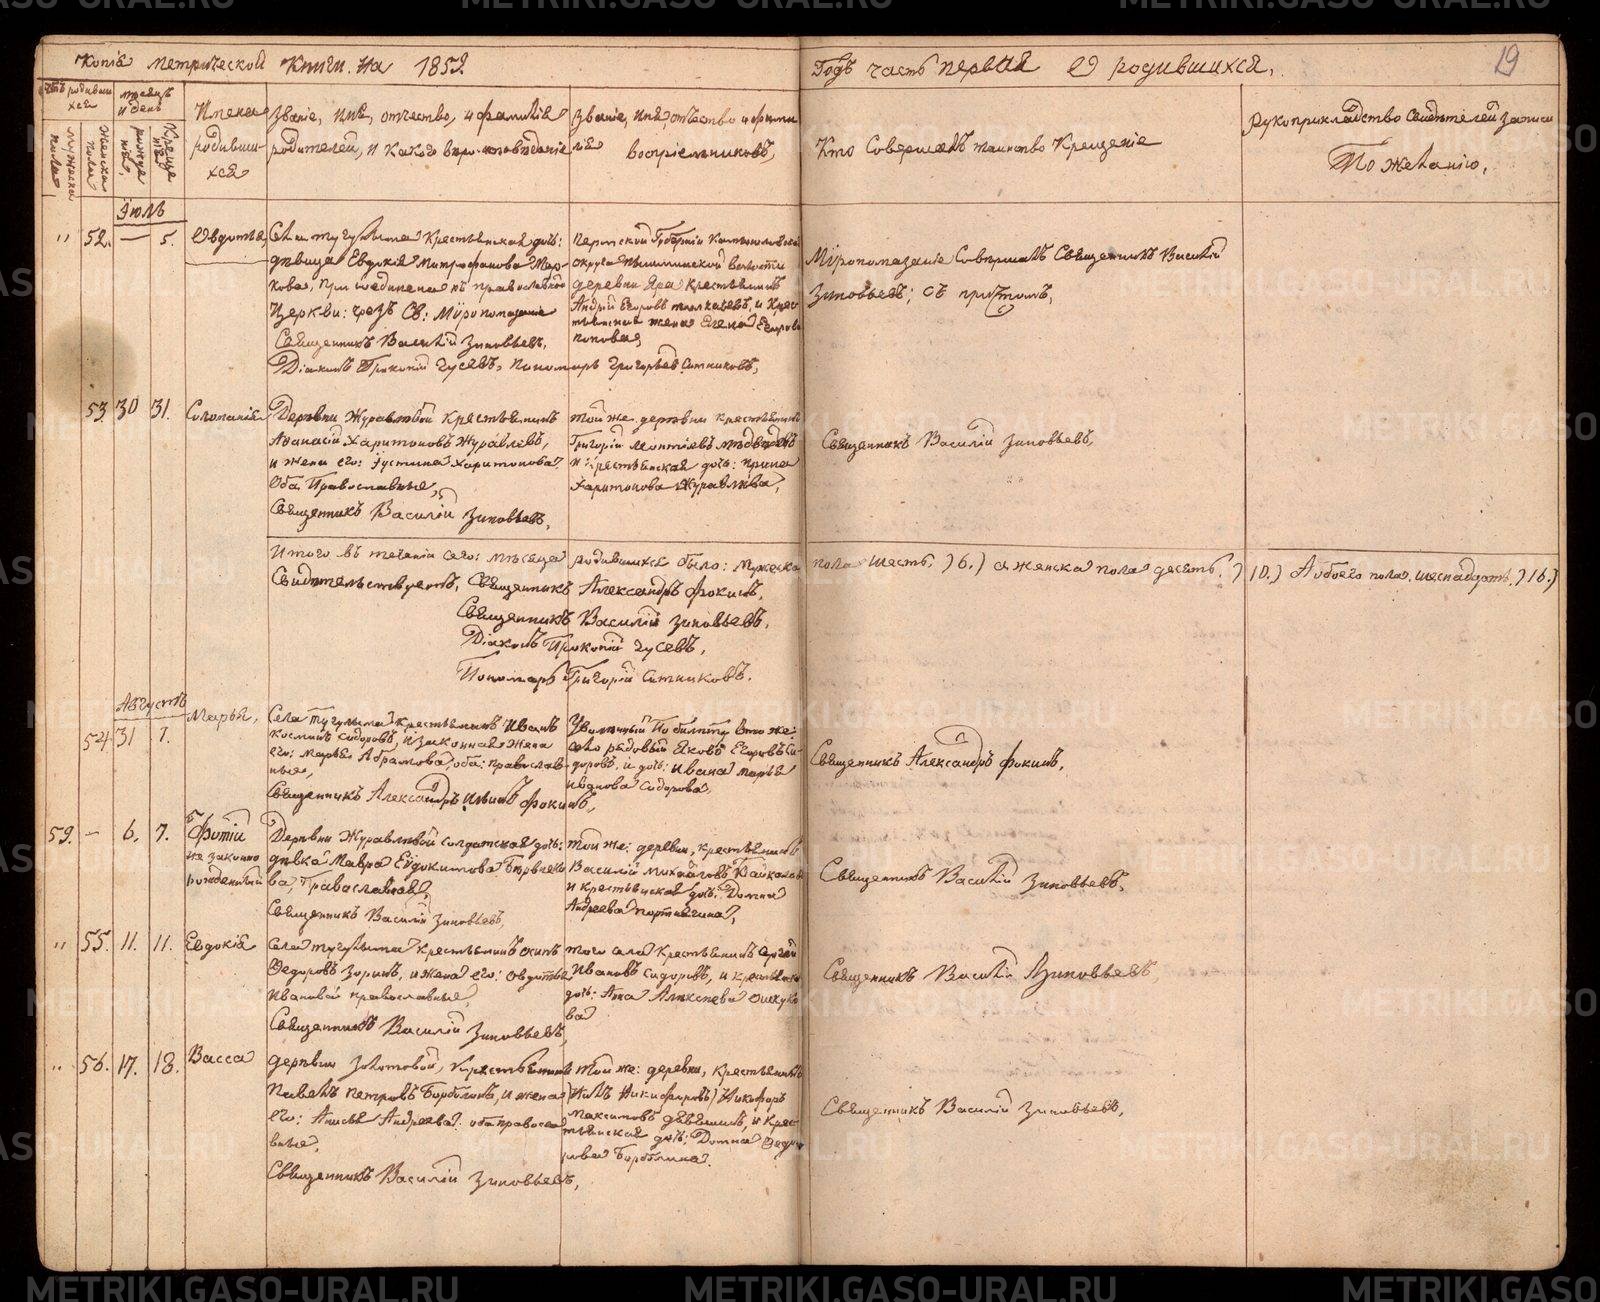 Копiя метрической книги на 1859.
Годъ часть первая о родившихся.
19
Имена родивши-хся
Званiе, имя, отчество, и фамилiя
родителей, и какого вѣроисповѣданiя
Званiе, имя, отчество и фами-
лiя воспрiемниковъ,
Кто Совершалъ таинство Крещенiе
Рукоприкладство Свидетелей записи
По желанiю,
Iюль
" 52. — 5. Овдотья,
Села Тугулыма Крестьянская доч:
дѣвица Евдокiя Митрофанова Мар-
кова, присоединена къ православной
Церкви: чрезъ Св: Мѵропомазанiе
Священникъ Василiй Зиновьевъ.
Дiаконъ Прокопiй Гусевъ, Пономарь Григорьевъ Ситниковъ,
Пермской Губернiи Камышловскаго
округа волости
деревни Яра крестьянинъ
Андрей Егоровъ и Крес-
тьянская жена Елена Егорова
попова,
Мѵропомазанiе Совершалъ Священникъ Василiй
Зиновьевъ; съ притомъ,
53. 30 31. Соломанiя
Деревни Журавлевой Крестьянинъ
Аѳанасiй Харитоновъ Журавлевъ,
и жена его: Iустина Харитонова.
Оба Православные,
Священникъ Василiй Зиновьевъ,
той же деревни крестьянинъ
Григорiй
и Крестьянская доч: Ирина
Харитонова Журавлева,
Священникъ Василiй Зиновьевъ,
Итого въ теченiи сего: мѣсяца родившихся было: Мужеска пола шесть. )6.) а женска пола десять. )10.) А обоего пола. шеснадцать. )16.)
Свидетельствуемъ, Священникъ Александръ Фокинъ.
Священникъ Василiй Зиновьевъ,
Дiаконъ Прокопiй Гусевъ,
Пономарь Григорiй Ситниковъ.
Августъ
54 31 1. Марья,
Села Тугулыма крестьянинъ Иванъ
Косминъ Сидоровъ, и законная жена
его: Марья Абрамова, оба: православ-
ные,
Священникъ Александръ Фокинъ,
Уволенный По билету Втоже:
село рядовый Яковъ Егоровъ Си-
доровъ, и доч: Ивана Марья
Иванова Сидорова,
Священникъ Александръ Фокинъ,
59. — 6. 7. Фотiй
не законно
рожденный
Деревни Журавлевой солдатская доч:
дѣвка Мавра Евдокимова
ва, Православная,
Священникъ Василiй Зиновьевъ,
той же: деревни, крестьянинъ
Василiй Михайловъ
и крестьянская доч. Домна
Андреева
Священникъ Василiй Зиновьевъ,
" 55. 11. 11. Евдокiя
Села Тугулыма Крестьянинъ Осипъ
Ѳедоровъ Зоринъ, и жена его: Овдотья
Ивановой православные,
Священникъ Василiй Зиновьевъ,
того села Крестьянинъ Сергей
Ивановъ Сидоровъ, и крестьянская
доч: Анна Алексеева
ва
Священникъ Василiй Зиновьевъ,
" 56. 17. 18. Васса
деревни Золотовой, Крестьянинъ
Павелъ Петровъ и жена
его: Анисья Андреева. оба правосла-
вные,
Священникъ Василiй Зиновьевъ,
той же: деревни, крестьянинъ
)Никифоровъ) Никифоръ
Максимовъ и Крес-
тьянская доч: Домна Ѳедо-
рова
Священникъ Василiй Зиновьевъ,
METRIKI.GASO-URAL.RU